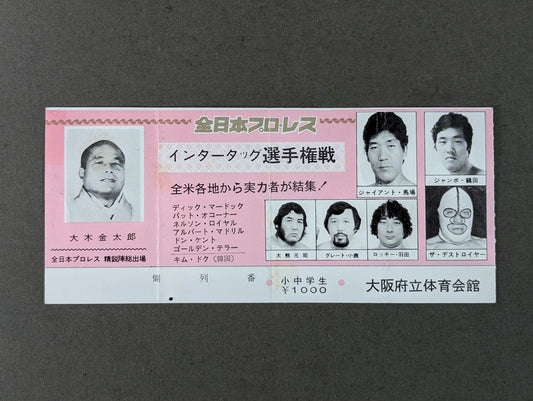 全日本プロ・レス
インタータッグ選手権戦
全米各地から実力者が結集!
ディック・マードック
パット・オコーナー
ネルソン・ロイヤル
アルバート・マドリル
ドン・ケント
ゴールデン・テラー
キム・ドク(韓国)
大木金太郎
全日本プロレス 精鋭陣総出場
ジャイアント・馬場
ジャンボ・鶴田
大熊元司
グレート・小鹿
ロッキー・羽田
ザ・デストロイヤー
側 列 番
小中学生
¥1000
大阪府立体育会館